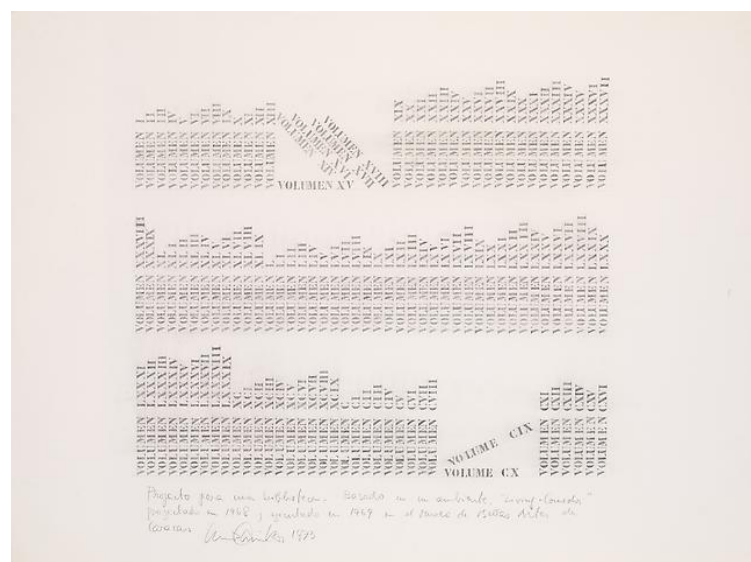 VOLUMEN I
VOLUMEN II
VOLUMEN III
VOLUMEN IV
VOLUMEN V
VOLUMEN VI
VOLUMEN VII
VOLUMEN VIII
VOLUMEN IX
VOLUMEN X
VOLUMEN XI
VOLUMEN XII
VOLUMEN XIII
VOLUMEN XIV
VOLUMEN XVI
VOLUMEN XVII
VOLUMEN XVIII
VOLUMEN XV
VOLUMEN XIX
VOLUMEN XX
VOLUMEN XXI
VOLUMEN XXII
VOLUMEN XXIII
VOLUMEN XXIV
VOLUMEN XXV
VOLUMEN XXVI
VOLUMEN XXVII
VOLUMEN XXVIII
VOLUMEN XXIX
VOLUMEN XXX
VOLUMEN XXXI
VOLUMEN XXXII
VOLUMEN XXXIII
VOLUMEN XXXIV
VOLUMEN XXXV
VOLUMEN XXXVI
VOLUMEN XXXVII
VOLUMEN XXXVIII
VOLUMEN XXXIX
VOLUMEN XL
VOLUMEN XLI
VOLUMEN XLII
VOLUMEN XLIII
VOLUMEN XLIV
VOLUMEN XLV
VOLUMEN XLVI
VOLUMEN XLVII
VOLUMEN XLVIII
VOLUMEN XLIX
VOLUMEN L
VOLUMEN LI
VOLUMEN LII
VOLUMEN LIII
VOLUMEN LIV
VOLUMEN LV
VOLUMEN LVI
VOLUMEN LVII
VOLUMEN LVIII
VOLUMEN LIX
VOLUMEN LX
VOLUMEN LXI
VOLUMEN LXII
VOLUMEN LXIII
VOLUMEN LXIV
VOLUMEN LXV
VOLUMEN LXVI
VOLUMEN LXVII
VOLUMEN LXVIII
VOLUMEN LXIX
VOLUMEN LXX
VOLUMEN LXXI
VOLUMEN LXXII
VOLUMEN LXXIII
VOLUMEN LXXIV
VOLUMEN LXXV
VOLUMEN LXXVI
VOLUMEN LXXVII
VOLUMEN LXXVIII
VOLUMEN LXXIX
VOLUMEN LXXX
VOLUMEN LXXXI
VOLUMEN LXXXII
VOLUMEN LXXXIII
VOLUMEN LXXXIV
VOLUMEN LXXXV
VOLUMEN LXXXVI
VOLUMEN LXXXVII
VOLUMEN LXXXVIII
VOLUMEN LXXXIX
VOLUMEN XC
VOLUMEN XCI
VOLUMEN XCII
VOLUMEN XCIII
VOLUMEN XCIV
VOLUMEN XCV
VOLUMEN XCVI
VOLUMEN XCVII
VOLUMEN XCVIII
VOLUMEN XCIX
VOLUMEN C
VOLUMEN CI
VOLUMEN CII
VOLUMEN CIII
VOLUMEN CIV
VOLUMEN CV
VOLUMEN CVI
VOLUMEN CVII
VOLUMEN CVIII
VOLUME CIX
VOLUME CX
VOLUMEN CXI
VOLUMEN CXII
VOLUMEN CXIII
VOLUMEN CXIV
VOLUMEN CXV
VOLUMEN CXVI
Proyecto para una biblioteca. Basado en un ambiente, "Living-Comedor"
proyectado en 1968 y ejecutado en 1969 en el Museo de Bellas Artes de
Caracas. 1975